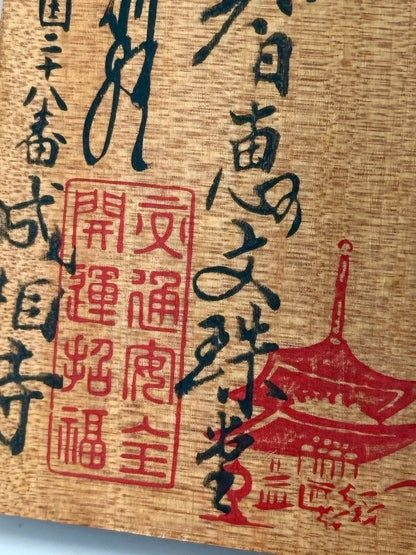 智恵文珠堂
交通安全
開運招福
国二十八番
成相寺